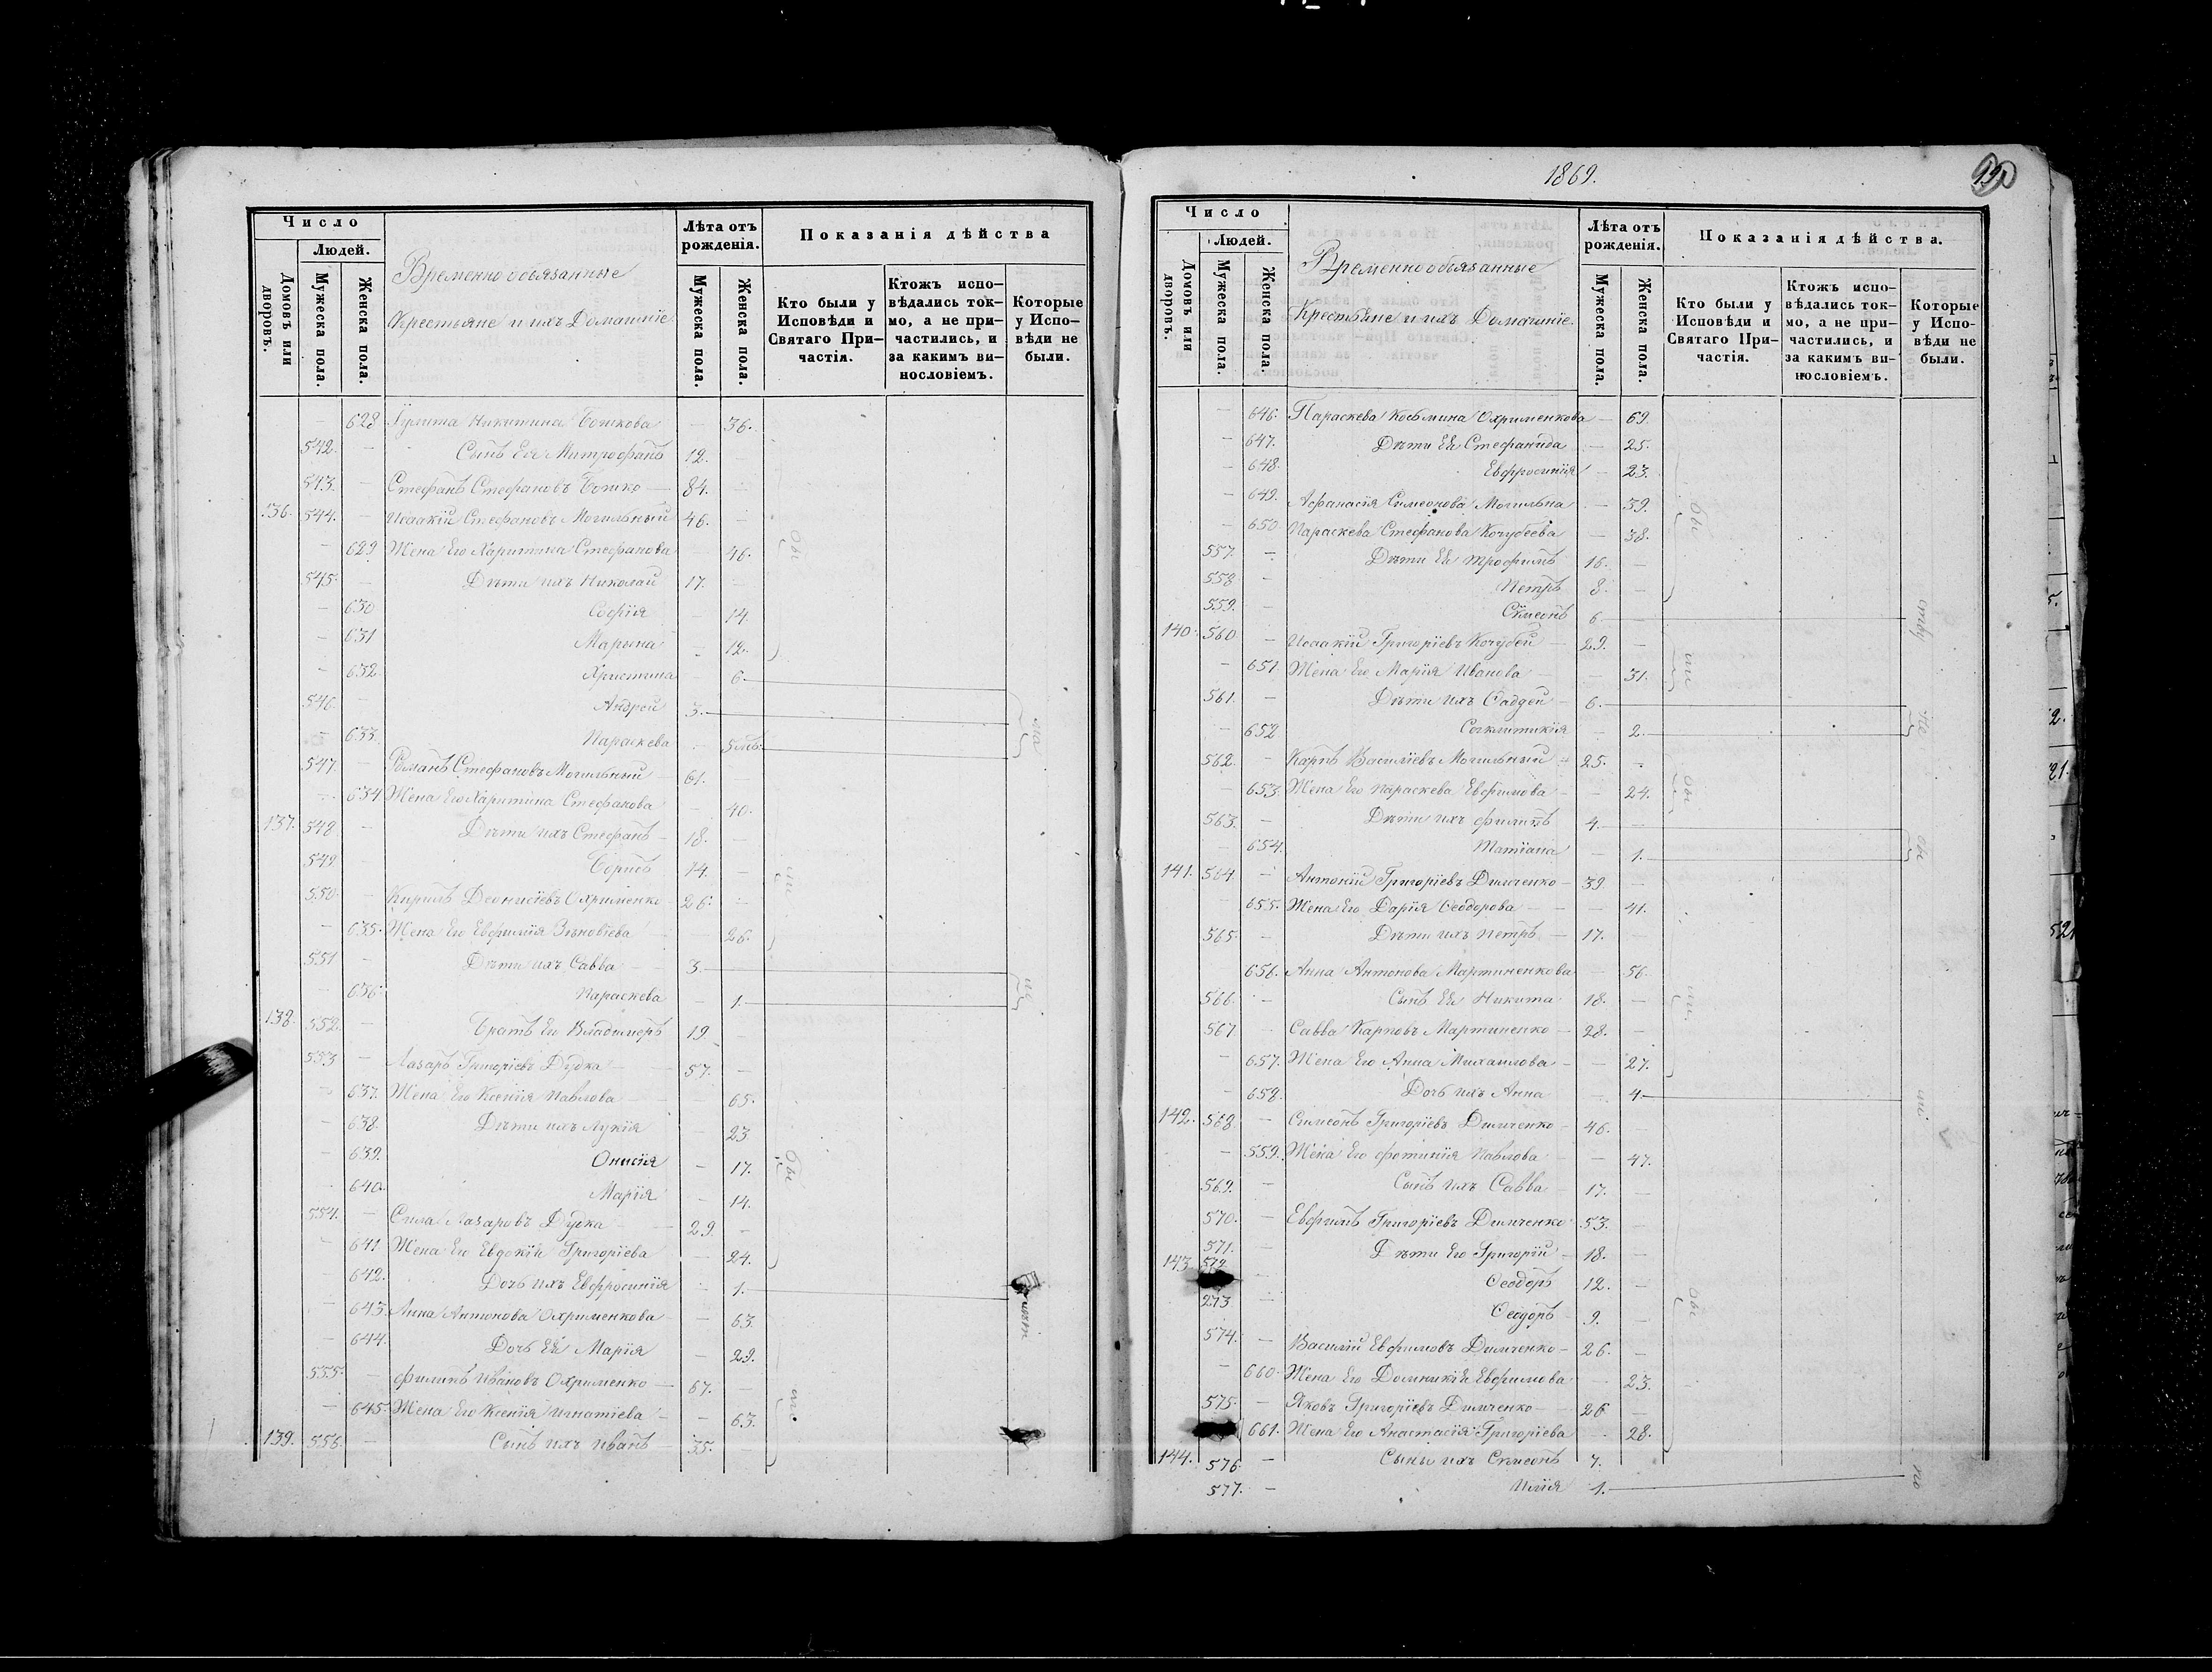 Число
Людей.
Домовъ или дворовъ.
Мужеска пола.
Женска пола.
Временнообязанные
Крестьяне и ихъ Домашніе
Лѣта отъ рожденія.
Мужеска пола.
Женска пола.
Показанія дѣйства
Кто были у Исповѣди и Святаго При-частія.
Ктожъ испо-вѣдались ток-мо, а не при-частились, и за какимъ ви-нословіемъ.
Которые у Испо-вѣди не были.
— 628 Іулита Никитина Бошкова — 36.
542. — Сынъ Ея Митрофанъ 12. —
543. — Стефанъ Стефановъ Бошко — 84. —
136. 544. — Исаакій Стефановъ Могильный 46. —
— 629 Жена Его Харитина Стефанова — 46.
545. — Дѣти ихъ Николай 17. —
— 630 Софія — 14.
— 631 Марина — 12.
— 632. Христина — 6.
546. — Андрей 3.
— 633. Параскева — 5 мѣ.
547. — Романъ Стефановъ Могильный 61. —
— 634 Жена Его Харитина Стефанова — 40.
137. 548. — Дѣти ихъ Стефанъ — 18. —
549. — Борисъ 14. —
550. — Кирилъ Деонисіевъ Охрименко 26. —
— 635. Жена Его Евфимія Зѣновіева — 26.
551 — Дѣти ихъ Савва — 3.
— 636 Параскева — 1.
138. 552. — Братъ Его Владимеръ 19. —
553 — Лазаръ Григоріевъ Дудка — 57. —
— 637. Жена Его Ксенія Павлова — 65.
— 638. Дѣти ихъ Лукія — 23
— 639. Онисія — 17.
— 640. Марія — 14.
554. — Сила Лазаровъ Дудка — 29. —
— 641 Жена Его Евдокія Григоріева — 24.
— 642. Дочь ихъ Евфросинія — 1.
— 643. Анна Антонова Охрименкова — 63.
— 644. Дочь Ея Марія — 29.
555. — Филипъ Ивановъ Охрименко — 67. —
— 645. Жена Его Ксенія Игнатіева — 63.
139. 556. — Сынъ ихъ Иванъ — 35. —
1869.
Число
Людей.
Домовъ или дворовъ.
Мужеска пола.
Женска пола.
Временнообязанные
Крестьяне и ихъ Домашніе.
Лѣта отъ рожденія.
Мужеска пола.
Женска пола.
Показанія дѣйства.
Кто были у Исповѣди и Святаго При-частія.
Ктожъ испо-вѣдались ток-мо, а не при-частились, и за какимъ ви-нословіемъ.
Которые у Испо-вѣди не были.
— 646. Параскева Косьмина Охрименкова — 69.
— 647. Дѣти Ея Стефанида — 25.
— 648. Евфросинія — 23.
— 649. Афанасія Симеонова Могильна — 39.
— 650 Параскева Стефанова Кочубеева — 38.
557. — Дѣти Ея Трофимъ 16. —
558 — Петръ 8. —
559. — Сѵмеонъ 6.
140. 560 — Исаакій Григоріевъ Кочубей — 29. —
— 651. Жена Его Марія Иванова — 31.
561. — Дѣти ихъ Фаддей — 6.
— 652 Сѵнклитикія — 2.
562. — Карпъ Василіевъ Могильный — 25. —
— 653. Жена Его Параскева Евфимова — 24.
563. — Дѣти ихъ Филипъ 4.
— 654. Татіана — 1.
141. 564. — Антоній Григоріевъ Димченко — 39. —
— 655. Жена Его Дарія Ѳеодорова — 41.
565. — Дѣти ихъ Петръ — 17. —
656. Анна Антонова Мартиненкова — 56.
566. — Сынъ Ея Никита 18. —
567 — Савва Карповъ Мартиненко — 28. —
— 657. Жена Его Анна Михаилова — 27.
— 658. Дочь ихъ Анна — 4.
142. 568. — Симеонъ Григоріевъ Димченко — 46. —
— 559. Жена Его Фотинія Павлова — 47.
569. — Сынъ ихъ Савва — 17. —
570. — Евфимъ Григоріевъ Димченко 53. —
571. — Дѣти Его Григорій — 18. —
143. 572. — Ѳеодоръ 12. —
273. — Ѳеодоръ 9. —
574. — Василій Евфимовъ Димченко — 26. —
— 660. Жена Его Домникія Евфимова — 23.
575. — Яковъ Григоріевъ Димченко — 26 —
661. Жена Его Анастасія Григоріева — 28.
144. 576. — Сыны ихъ Сѵмеонъ 7.
577. — Илія 1.